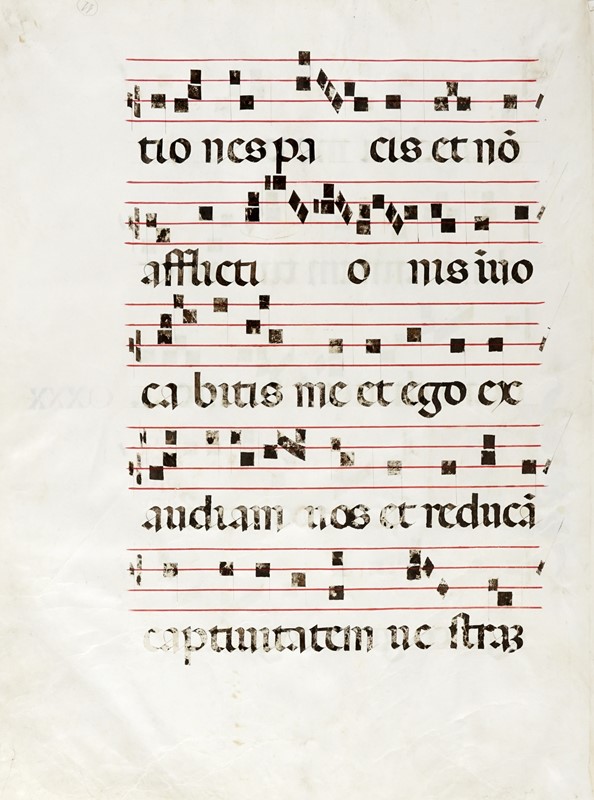 tio nes pa cis et nō
afflicti o nis īvo
ca bitis me et ego ex
audiam vos et reducā
captivitatem ve straʒ